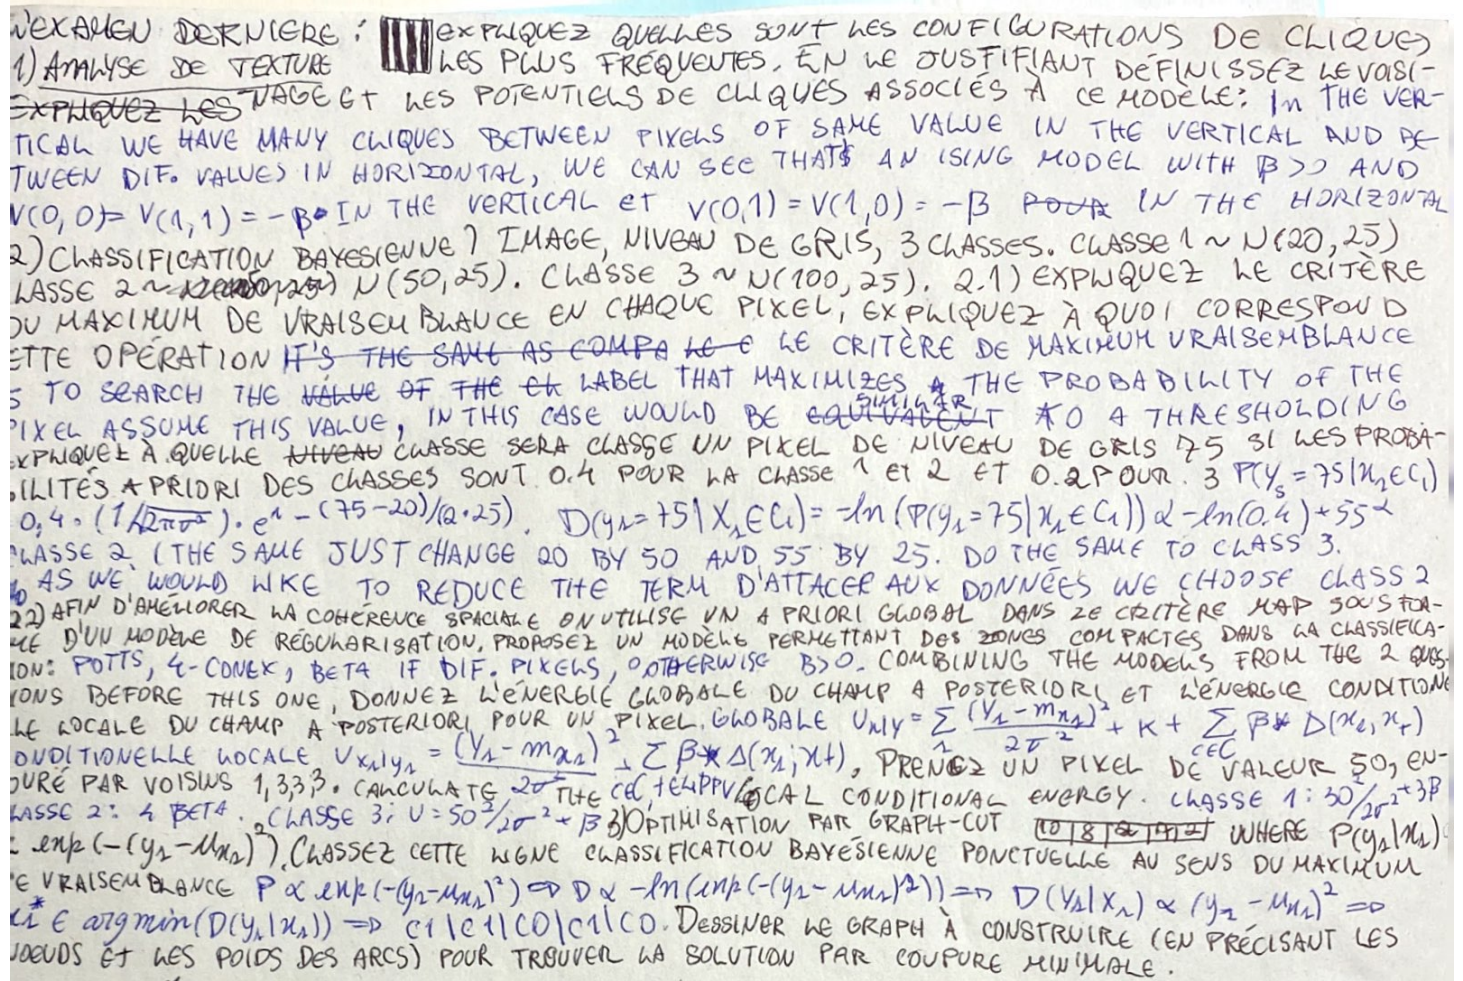 N'EXAMEN DERNIERE : EXPLIQUEZ QUELLES SONT LES CONFIGURATIONS DE CLIQUES
1) ANALYSE DE TEXTURE LES PLUS FRÉQUENTES. EN LE JUSTIFIANT DÉFINISSEZ LE VOISI-
EXPLIQUEZ LES NAGE ET LES POTENTIELS DE CLIQUES ASSOCIÉS À CE MODELE: IN THE VER-
TICAL WE HAVE MANY CLIQUES BETWEEN PIXELS OF SAME VALUE IN THE VERTICAL AND BE-
TWEEN DIF. VALUES IN HORIZONTAL, WE CAN SEE THAT$ AN ISING MODEL WITH β>0 AND
V(0,0)= V(1,1) = -β IN THE VERTICAL ET V(0,1) = V(1,0) = -β POUR IN THE HORIZONTAL
2) CLASSIFICATION BAYESIENNE) IMAGE, NIVEAU DE GRIS, 3 CLASSES. CLASSE 1 ~ N(20,25)
LASSE 2 ~ N(50,25). CLASSE 3 ~ N(100,25). 2.1) EXPLIQUEZ LE CRITÈRE
DU MAXIMUM DE VRAISEMBLANCE EN CHAQUE PIXEL, EXPLIQUEZ À QUOI CORRESPOND
ETTE OPÉRATION IT'S THE SAME AS COMPA LE C LE CRITÈRE DE MAXIMUM VRAISEMBLANCE
S TO SEARCH THE VALUE OF THE CL LABEL THAT MAXIMIZES THE PROBABILITY OF THE
PIXEL ASSUME THIS VALUE, IN THIS CASE WOULD BE EQUIVALENT SIMILAR TO A THRESHOLDING
EXPLIQUEZ À QUELLE NIVEAU CLASSE SERA CLASSÉ UN PIXEL DE NIVEAU DE GRIS 75 SI LES PROBA-
ILITÉS A PRIORI DES CLASSES SONT 0.4 POUR LA CLASSE 1 ET 2 ET 0.2 POUR 3 P(Ys = 75|xs∈C1)
0,4·(1/√2πσ²)·e^ -(75-20)/(2·25). D(ys=75|Xs∈C1)= -ln(P(ys=75|xs∈C1)) α -ln(0.4)+55²
CLASSE 2 (THE SAME JUST CHANGE 20 BY 50 AND 55 BY 25. DO THE SAME TO CLASS 3.
AS WE WOULD LIKE TO REDUCE THE TERM D'ATTACEE AUX DONNÉES WE CHOOSE CLASS 2
22) AFIN D'AMÉLIORER LA COHÉRENCE SPACIALE ON UTILISE UN A PRIORI GLOBAL DANS LE CRITÈRE MAP SOUS FOR-
ME D'UN MODÈLE DE RÉGULARISATION. PROPOSEZ UN MODÈLE PERMETTANT DES ZONES COMPACTES DANS LA CLASSIFICA-
ION: POTTS, 4-CONEX, BETA IF DIF. PIXELS, 0 OTHERWISE B>0. COMBINING THE MODELS FROM THE 2 QUES-
IONS BEFORE THIS ONE, DONNEZ L'ÉNERGIE GLOBALE DU CHAMP A POSTERIORI ET L'ÉNERGIE CONDITIONE
LE LOCALE DU CHAMP A POSTERIORI POUR UN PIXEL. GLOBALE Ux|y = Σs (Ys - mxs)²/2σ² + K + Σc∈C β* Δ(xs, xt)
ONDITIONELLE LOCALE Uxs|ys = (Ys - mxs)²/2σ² + Σ c∈C, t∈4PPV β* Δ(xs; xt). PRENEZ UN PIXEL DE VALEUR 50, EN-
OURÉ PAR VOISINS 1,3,3,3. CALCULATE THE LOCAL CONDITIONAL ENERGY. CLASSE 1: 30²/2σ²+3β
LASSE 2: 4 BETA. CLASSE 3: U=50²/2σ² + β 3) OPTIMISATION PAR GRAPH-CUT WHERE P(ys|xs)
= exp(-(ys-μxs)²). CLASSEZ CETTE LIGNE CLASSIFICATION BAYÉSIENNE PONCTUELLE AU SENS DU MAXIMUM
E VRAISEMBLANCE P α exp(-(ys-μxs)²) ⇒ D α -ln(exp(-(ys-μxs)²)) ⇒ D(Ys|Xs) α (ys-μxs)² ⇒
xi* ∈ argmin(D(ys|xs)) ⇒ C1|C1|C0|C1|C0. DESSINER LE GRAPH À CONSTRUIRE (EN PRÉCISANT LES
NOEUDS ET LES POIDS DES ARCS) POUR TROUVER LA SOLUTION PAR COUPURE MINIMALE.